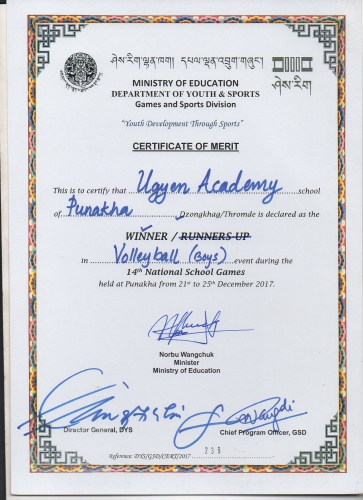 ཤེས་རིག་ལྷན་ཁག། དཔལ་ལྡན་འབྲུག་གཞུང་།
ཤེས་རིག
MINISTRY OF EDUCATION
DEPARTMENT OF YOUTH & SPORTS
Games and Sports Division
"Youth Development Through Sports"
CERTIFICATE OF MERIT
This is to certify that Ugyen Academy school
of Punakha Dzongkhag/Thromde is declared as the
WINNER / RUNNERS UP
In Volleyball (Boys) event during the
14th National School Games
held at Punakha from 21st to 25th December 2017.
Norbu Wangchuk
Minister
Ministry of Education
Director General, DYS
Chief Program Officer, GSD
Reference: DYS/GSD/CERT/2017 239